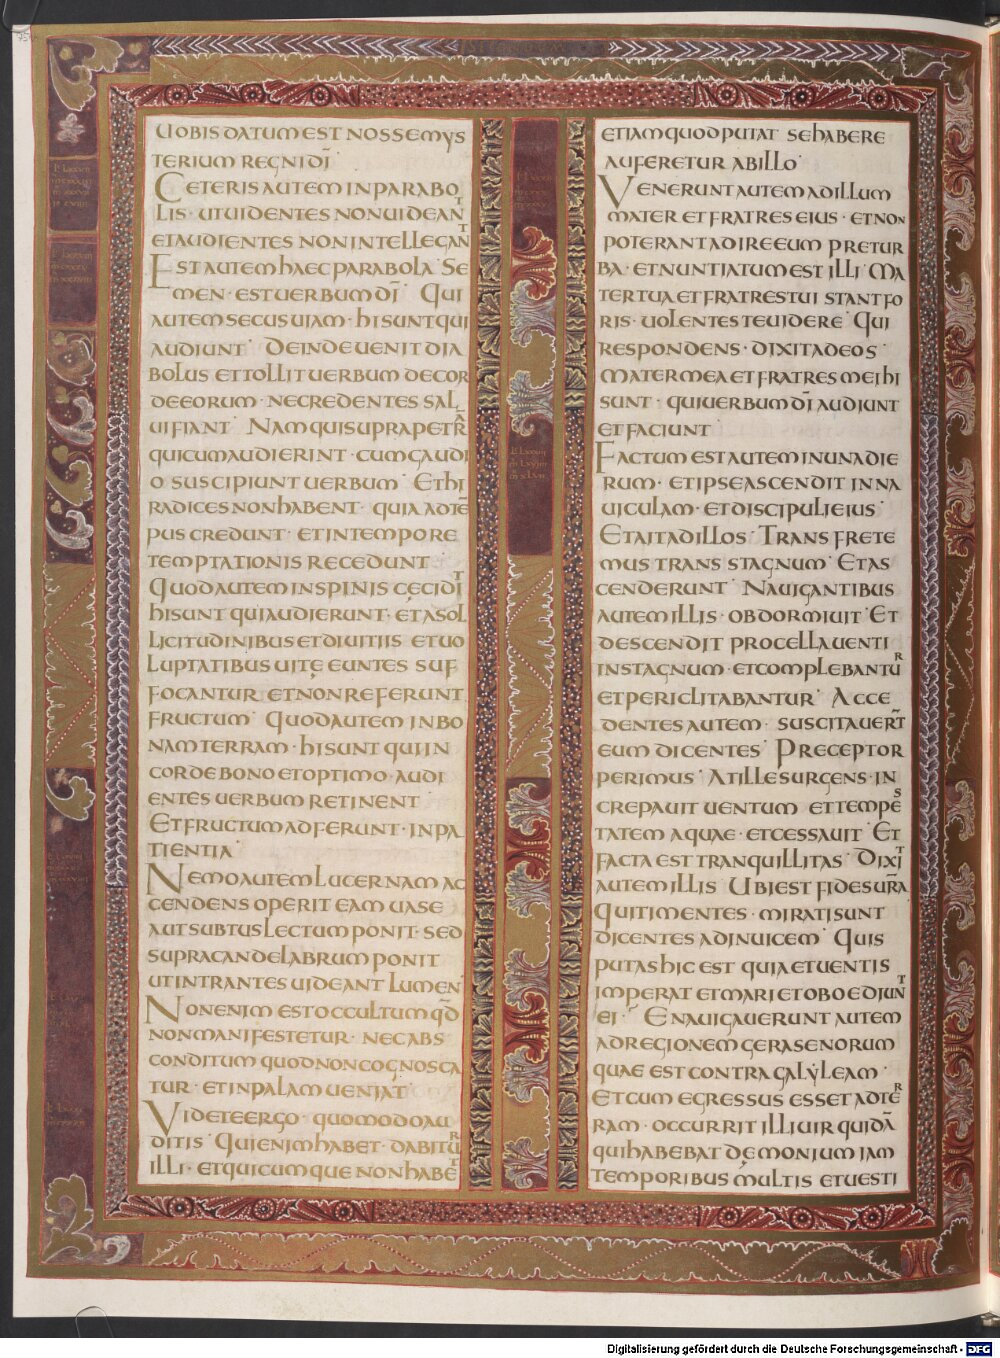 UOBIS DATUM EST NOSSE MYS
TERIUM REGNI DĪ
CETERIS AUTEM IN PARABO
LIS · UT UIDENTES NON UIDEANT
ET AUDIENTES NON INTELLEGANT
EST AUTEM HAEC PARABOLA · SE
MEN · EST UERBUM DĪ · QUI
AUTEM SECUS UIAM · HI SUNT QUI
AUDIUNT · DEINDE UENIT DIA
BOLUS ET TOLLIT UERBUM DE COR
DE EORUM · NE CREDENTES SAL
UI FIANT · NAM QUI SUPRA PETRĀ
QUI CUM AUDIERINT · CUM GAUDI
O SUSCIPIUNT UERBUM · ET HI
RADICES NON HABENT · QUIA AD TĒ
PUS CREDUNT · ET IN TEMPORE
TEMPTATIONIS RECEDUNT
QUOD AUTEM IN SPINIS CECIDIT
HI SUNT QUI AUDIERUNT · ET A SOL
LICITUDINIBUS ET DIUITIIS ET UO
LUPTATIBUS UITĘ EUNTES SUF
FOCANTUR ET NON REFERUNT
FRUCTUM · QUOD AUTEM IN BO
NAM TERRAM · HI SUNT QUI IN
CORDE BONO ET OPTIMO · AUDI
ENTES UERBUM RETINENT
ET FRUCTUM ADFERUNT · IN PA
TIENTIA ·
NEMO AUTEM LUCERNAM AC
CENDENS OPERIT EAM UASE
AUT SUBTUS LECTUM PONIT · SED
SUPRA CANDELABRUM PONIT
UT INTRANTES UIDEANT LUMEN
NON ENIM EST OCCULTUM QD̄
NON MANIFESTETUR · NEC ABS
CONDITUM QUOD NON COGNOSCA
TUR · ET IN PALAM UENIAT ·
VIDETE ERGO · QUOMODO AU
DITIS · QUI ENIM HABET · DABITUR
ILLI · ET QUICUMQUE NON HABET
ETIAM QUOD PUTAT SE HABERE
AUFERETUR AB ILLO
VENERUNT AUTEM AD ILLUM
MATER ET FRATRES EIUS · ET NON
POTERANT ADIRE EUM PRE TUR
BA · ET NUNTIATUM EST ILLI · MA
TER TUA ET FRATRES TUI STANT FO
RIS · UOLENTES TE UIDERE · QUI
RESPONDENS · DIXIT AD EOS ·
MATER MEA ET FRATRES MEI HI
SUNT · QUI UERBUM DĪ AUDIUNT
ET FACIUNT
FACTUM EST AUTEM IN UNA DIE
RUM · ET IPSE ASCENDIT IN NA
UICULAM · ET DISCIPULI EIUS ·
ET AIT AD ILLOS · TRANSFRETE
MUS TRANS STAGNUM · ET AS
CENDERUNT · NAUIGANTIBUS
AUTEM ILLIS · OBDORMIUIT · ET
DESCENDIT PROCELLA UENTI
IN STAGNUM · ET COMPLEBANTUR
ET PERICLITABANTUR · ACCE
DENTES AUTEM · SUSCITAUER̄T
EUM DICENTES · PRECEPTOR
PERIMUS · AT ILLE SURGENS · IN
CREPAUIT UENTUM ET TEMPES
TATEM AQUAE · ET CESSAUIT · ET
FACTA EST TRANQUILLITAS · DIXIT
AUTEM ILLIS UBI EST FIDES UR̄A
QUI TIMENTES · MIRATI SUNT
DICENTES AD INUICEM · QUIS
PUTAS HIC EST QUIA ET UENTIS
IMPERAT ET MARI ET OBOEDIUNT
EI · ENAUIGAUERUNT AUTEM
AD REGIONEM GERASENORUM
QUAE EST CONTRA GALYLEAM ·
ET CUM EGRESSUS ESSET AD TER
RAM · OCCURRIT ILLI UIR QUIDĀ
QUI HABEBAT DĘMONIUM IAM
TEMPORIBUS MULTIS ET UESTI
Digitalisierung gefördert durch die Deutsche Forschungsgemeinschaft - DFG